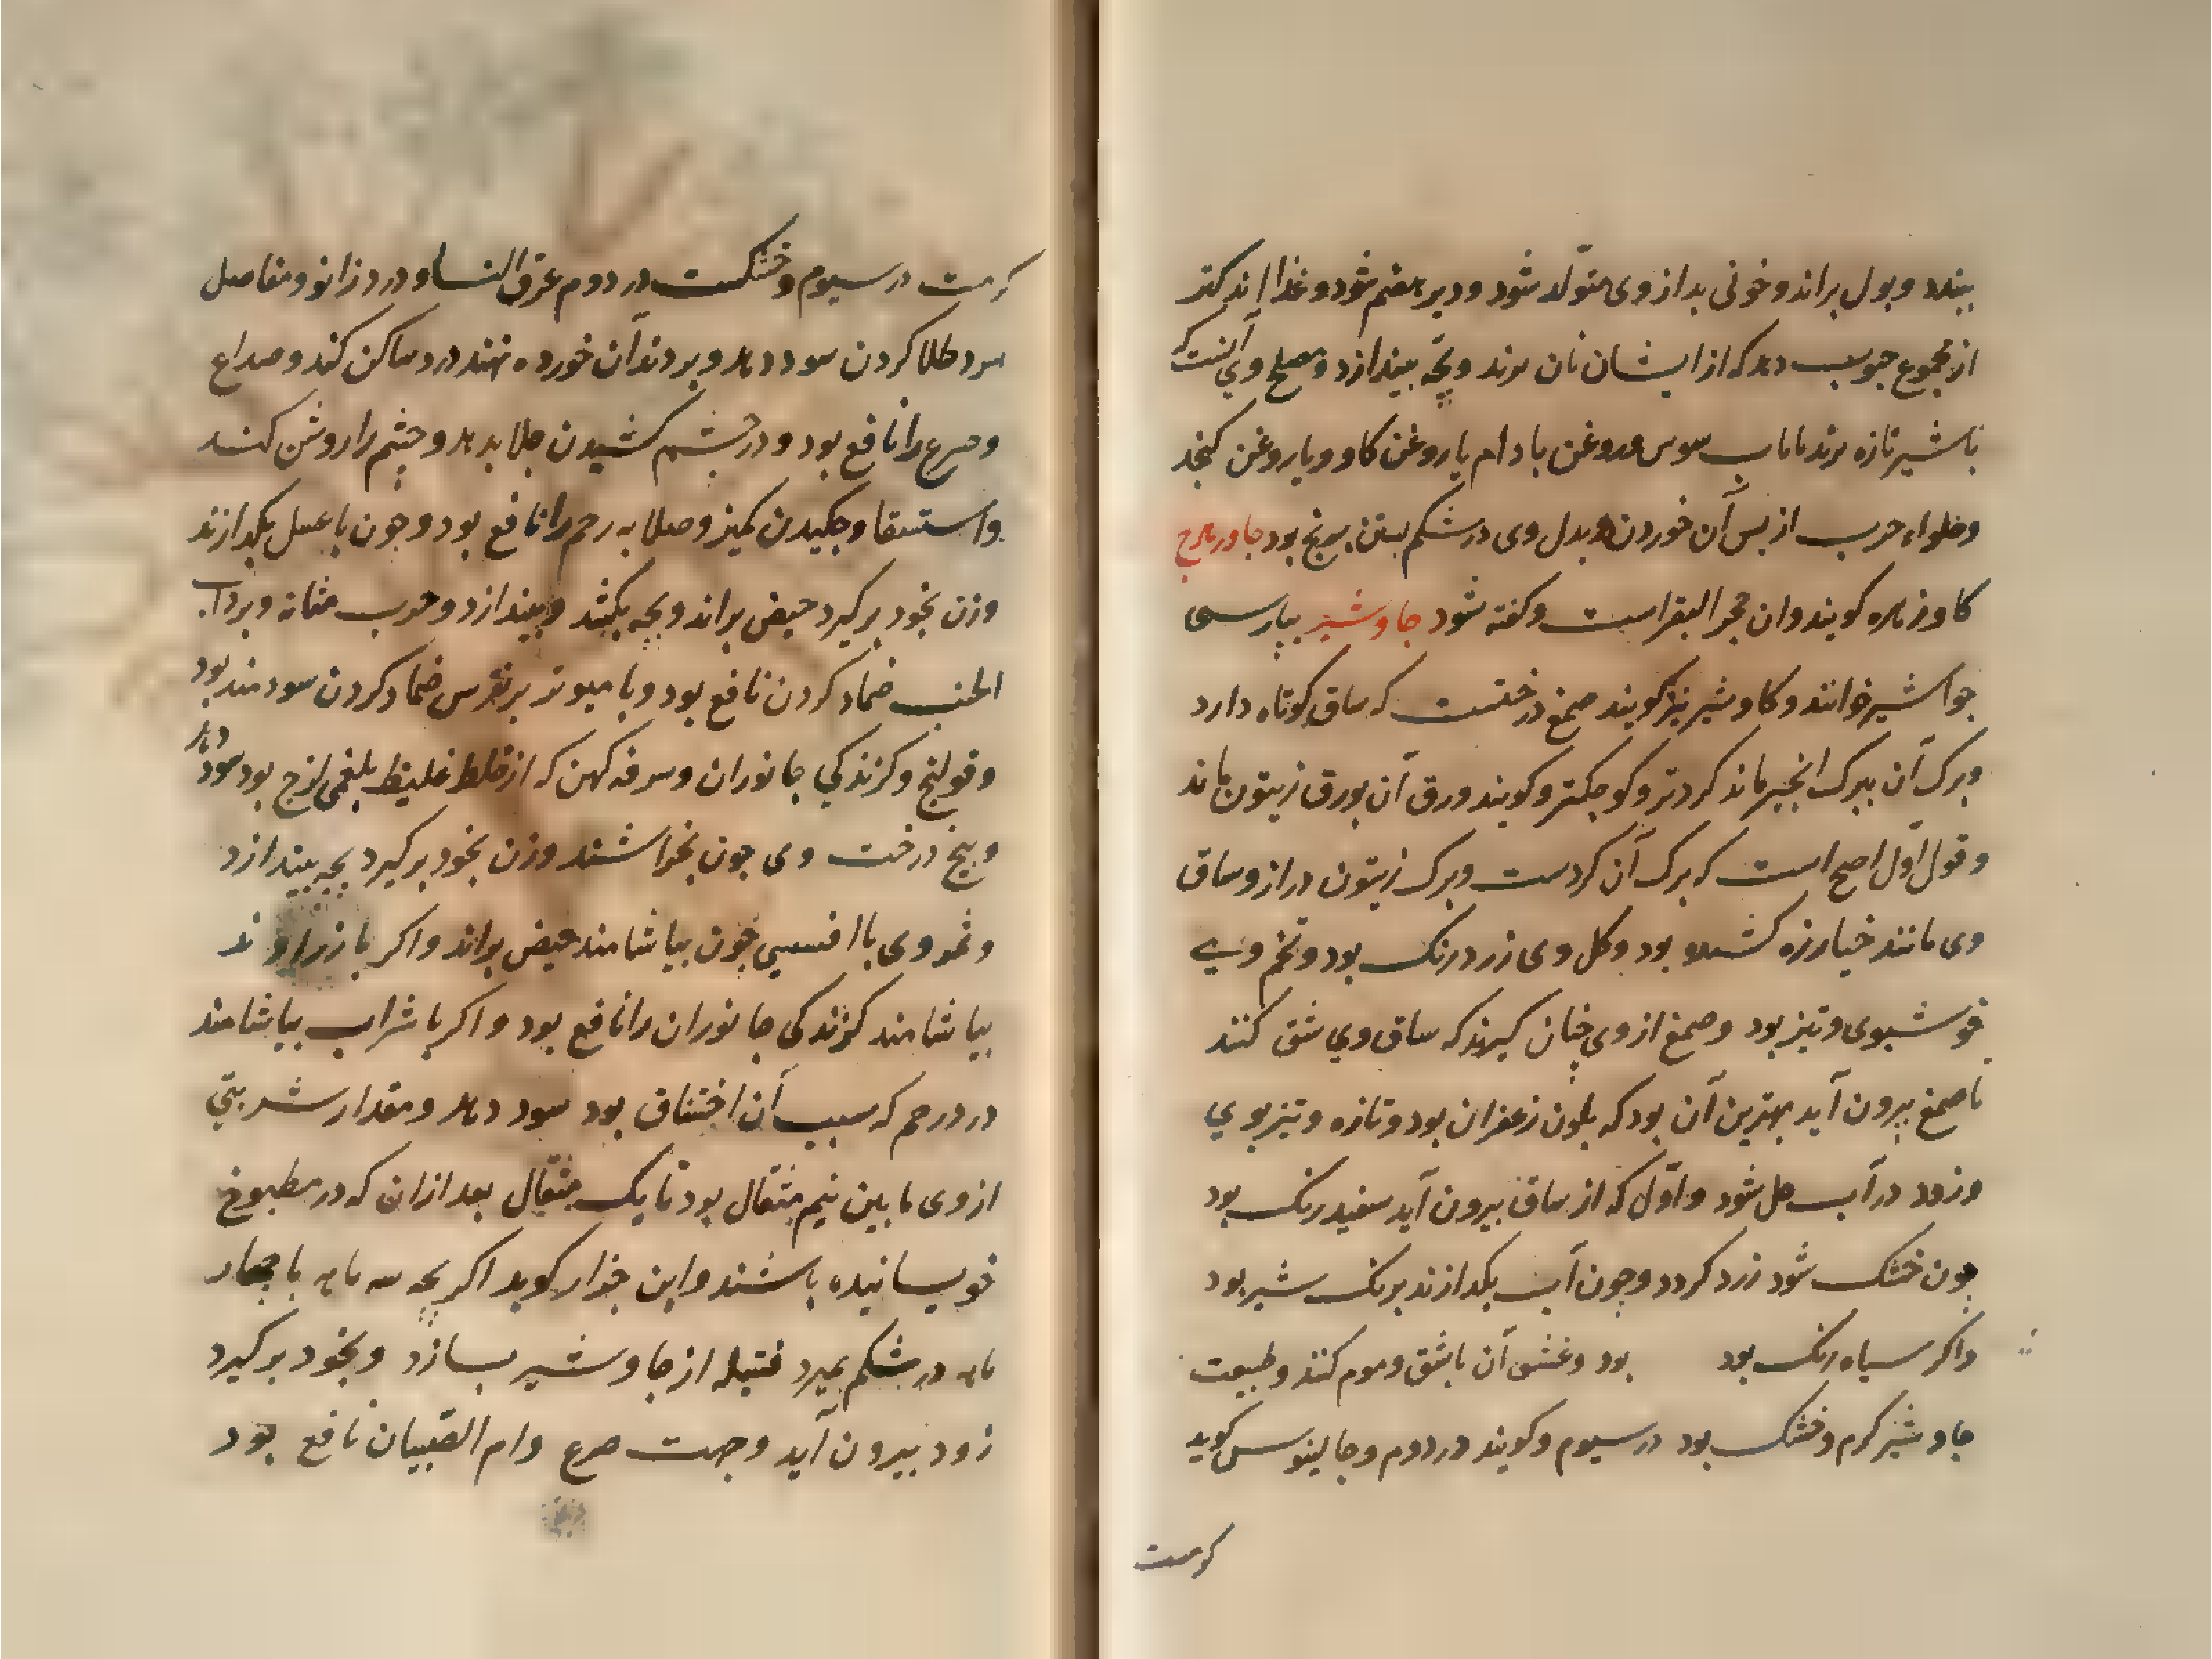 ببندد و بول براند و خونی بد از وی متولد شود و دیر هضم شود و غذا اندکتر
از مجموع حبوب دهد که از ایشان نان پزند و بچه بیندازد و مصلح وی آنست که
با شیر تازه پزند یا باب سوس و روغن بادام یا روغن کاو و یا روغن کنجد
و حلواء چرب از بس آن خوردن و بدل وی در شکم بستن برنج بود جاورهرج
کاوزهره کویند و ان حجر البقر است و کفته شود جاوشیر بپارسی
جواشیر خوانند و کاوشیر نیز کویند صمغ درختست که ساق کوتاه دارد
وبرک آن ببرک انجیر ماند کردتر و کوجکتر و کویند ورق آن بورق زیتون ماند
و قول اول اصح است که برک آن کردست و برک زیتون دراز و ساق
وی مانند خیارزه کشیده بود و کل وی زرد رنک بود و تخم وی
خوشبوی و تیز بود و صمغ از وی چنان کیرند که ساق وی شق کنند
تا صمغ بیرون آید بهترین آن بود که بلون زعفران بود و تازه و تیزبوی
و زود در آب حل شود و اول که از ساق بیرون آید سفید رنک بود
چون خشک شود زرد کردد و چون آب بکدازند برنک شیر بود
و اکر سیاه رنک بود بود و غش آن باشق و موم کنند و طبیعت
جاوشیر کرم و خشک بود در سیوم و کویند در دوم و جالینوس کوید
کرمست
کرمست در سیوم و خشکست در دوم عرق النسا و درد زانو و مفاصل
سرد طلا کردن سود دهد و بر دندان خورده نهند درد ساکن کند و صداع
و صرع را نافع بود و در چشم کشیدن جلا بدهد و چشم را روشن کند
و استسقا و جکیدن کمیز و صلابه رحم را نافع بود و چون با عسل بکدازند
و زن بخود برکیرد حیض براند و بچه بکشد و بیندازد و جرب مثانه و برذات
الجنب ضماد کردن نافع بود و با میویز بر نقرس ضماد کردن سودمند بود
و قولنج و کزندکی جانوران و سرفه کهن که از خلط غلیظ بلغمی لزج بود سود دهد
و بیخ درخت وی چون بخراشند و زن بخود برکیرد بچه بیندازد
و ثمر وی با افسنتین چون بیاشامند حیض براند و اکر با زراوند
بیاشامند کزندکی جانوران را نافع بود و اکر با شراب بیاشامند
درد رحم که سبب آن اختناق بود سود دهد و مقدار شربتی
از وی ما بین نیم مثقال بود تا یک مثقال بعد از ان که در مطبوخ
خویسانیده باشند و ابن جزار کوید اکر بچه سه ماهه یا چهار
ماهه در شکم بمیرد فتیله از جاوشیر بسازد و بخود برکیرد
زود بیرون آید و جهت صرع و ام الصبیان نافع بود